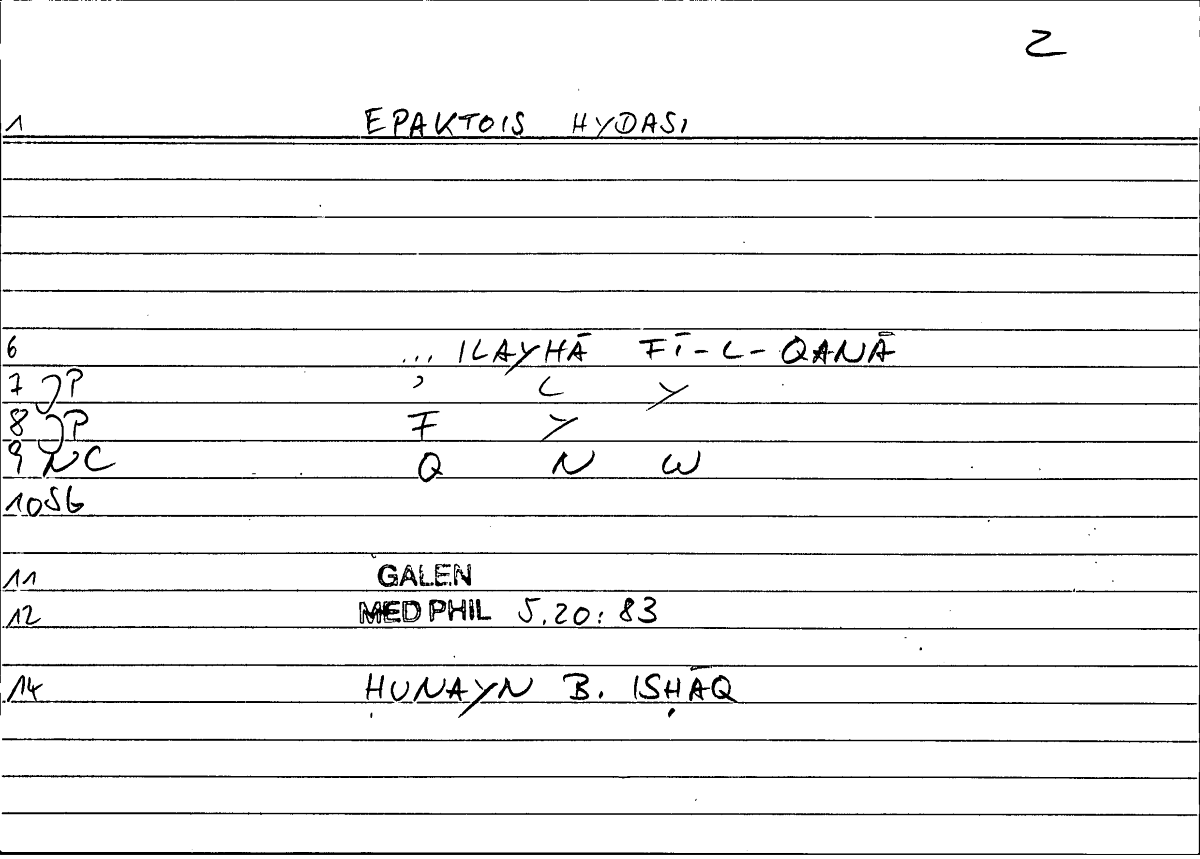 2
1 EPAKTOIS HYDASI
6 ... ILAYHĀ FĪ-L-QANĀ
7 JP ʾ L Y
8 JP F Y
9 NC Q N W
10 SG
11 GALEN
12 MED PHIL 5.20:83
14 ḤUNAYN B. ISḤĀQ